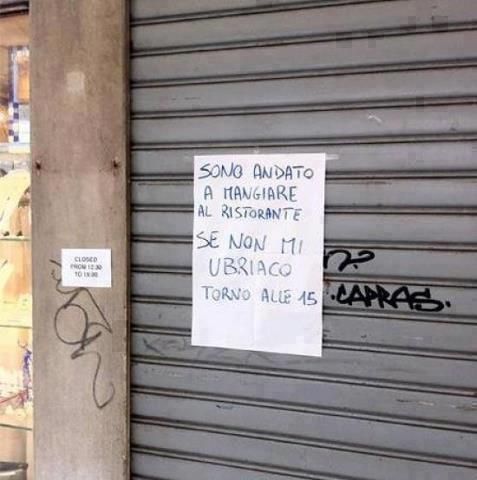 SONO ANDATO
A MANGIARE
AL RISTORANTE
SE NON MI
UBRIACO
TORNO ALLE 15
CLOSED
FROM 12:30
TO 15:00
.CAPRAS.